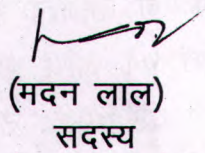 (मदन लाल)
सदस्य